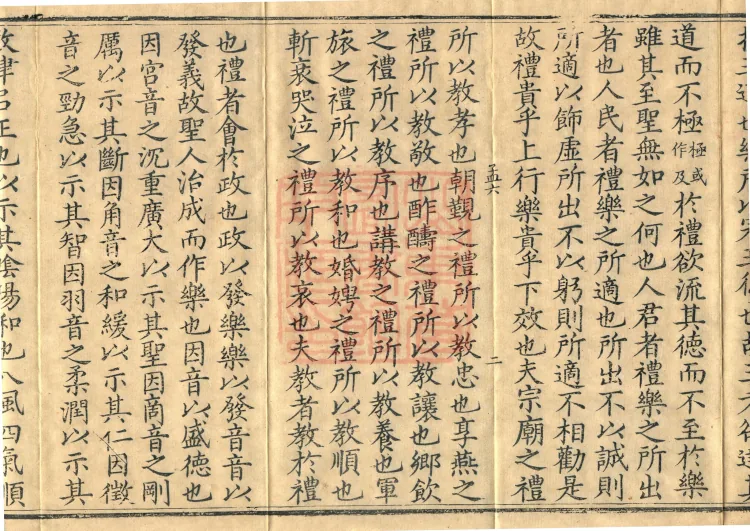 道而不極極或作及於禮欲流其德而不至於樂
雖其至聖無如之何也人君者禮樂之所出
者也人民者禮樂之所適也所出不以誠則
所適以飾虛所出不以躬則所適不相勸是
故禮貴乎上行樂貴乎下效也夫宗廟之禮
孟六
二
所以教孝也朝覲之禮所以教忠也享燕之
禮所以教敬也酢醻之禮所以教讓也鄉飲
之禮所以教序也講教之禮所以教養也軍
旅之禮所以教和也婚娉之禮所以教順也
斬衰哭泣之禮所以教哀也夫教者教於禮
也禮者會於政也政以發樂樂以發音音以
發義故聖人治成而作樂也因音以盛德也
因宮音之沉重廣大以示其聖因商音之剛
厲以示其斷因角音之和緩以示其仁因徵
音之勁急以示其智因羽音之柔潤以示其
也以示其陰陽和也八風四氣順